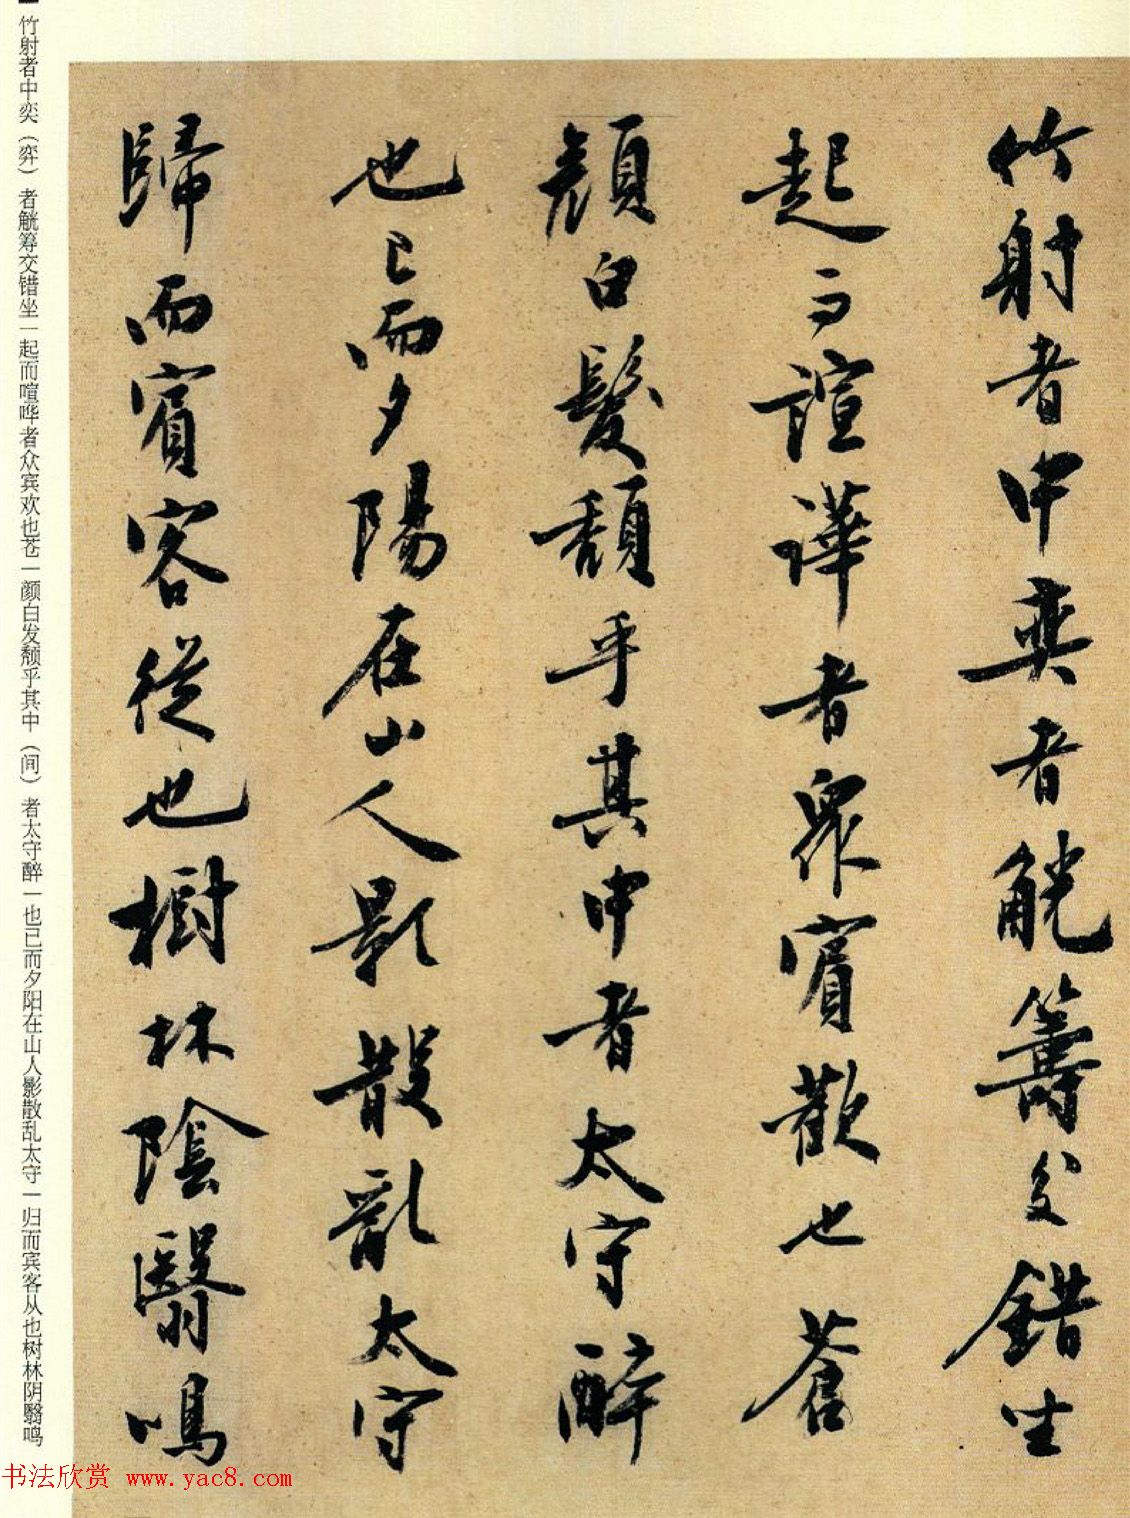 竹射者中奕者觥籌交錯坐
起而諠譁者衆賓歡也蒼
顏白髮頹乎其中者太守醉
也已而夕陽在山人影散亂太守
歸而賓客從也樹林陰翳鳴
竹射者中奕（弈）者觥筹交错坐｜起而喧哗者众宾欢也苍｜颜白发颓乎其中（间）者太守醉｜也已而夕阳在山人影散乱太守｜归而宾客从也树林阴翳鸣
书法欣赏 www.yac8.com